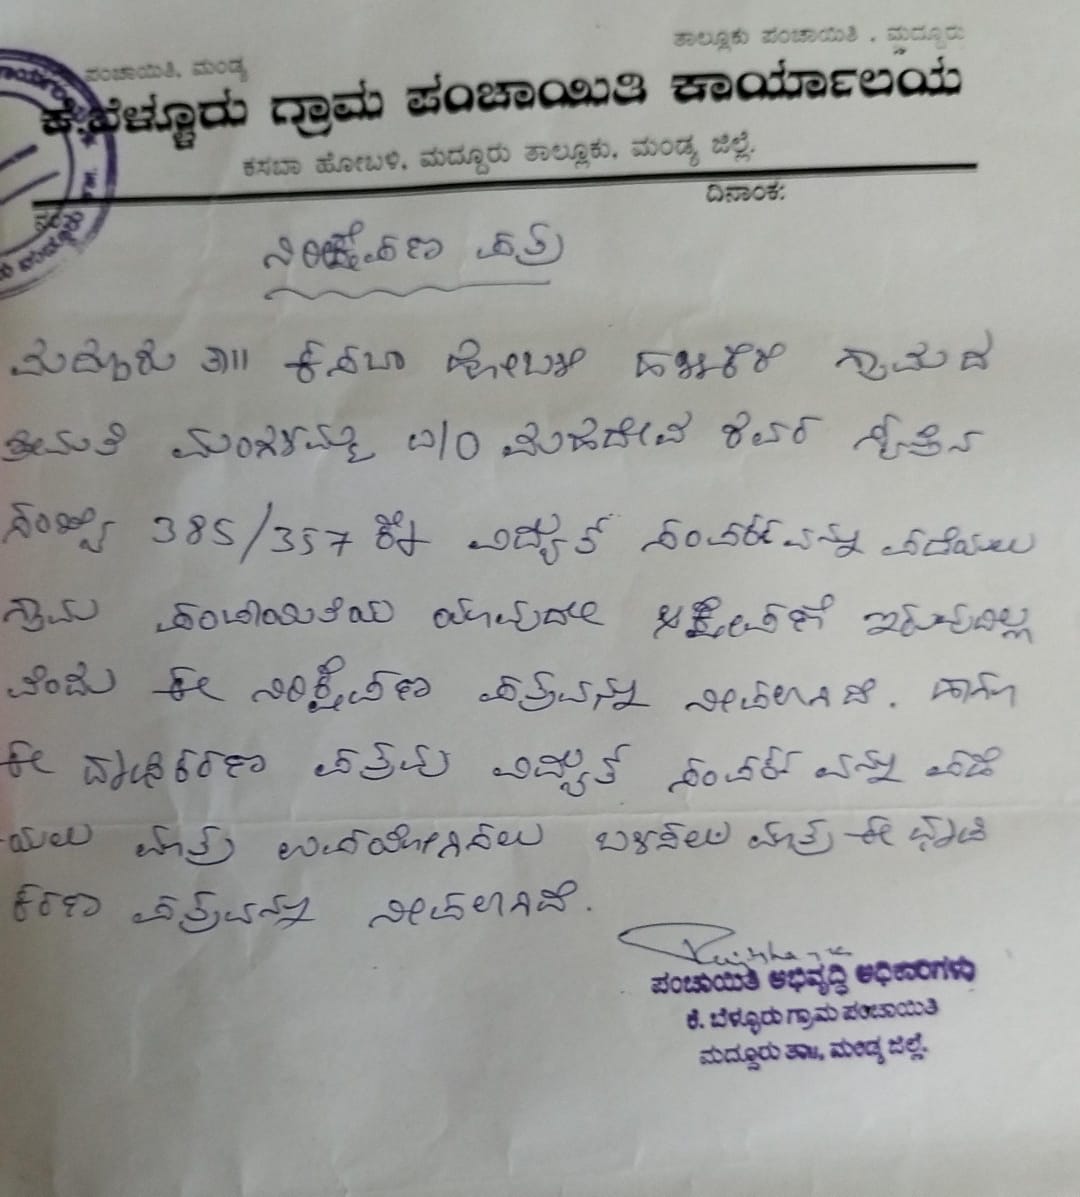 ತಾಲ್ಲೂಕು ಪಂಚಾಯಿತಿ . ಮದ್ದೂರು
ಪಂಚಾಯಿತಿ, ಮಂಡ್ಯ
ಕೆ.ಬೆಳ್ಳೂರು ಗ್ರಾಮ ಪಂಚಾಯಿತಿ ಕಾರ್ಯಾಲಯ
ಕಸಬಾ ಹೋಬಳಿ, ಮದ್ದೂರು ತಾಲ್ಲೂಕು, ಮಂಡ್ಯ ಜಿಲ್ಲೆ.
ದಿನಾಂಕ:
ನಿರಾಕ್ಷೇಪಣಾ ಪತ್ರ
ಮದ್ದೂರು ತಾ॥ ಕಸಬಾ ಹೋಬಳಿ ಗ್ರಾಮದ
ಶ್ರೀಮತಿ ಮಂಗಳಮ್ಮ ಮಹದೇವ ಸ್ವತ್ತಿನ
ಸಂಖ್ಯೆ 385/357 ಕ್ಕೆ ವಿದ್ಯುತ್ ಸಂಪರ್ಕವನ್ನು ಪಡೆಯಲು
ಗ್ರಾಮ ಪಂಚಾಯಿತಿಯ ಯಾವುದೇ ಆಕ್ಷೇಪಣೆ ಇರುವುದಿಲ್ಲ
ವೆಂದು ಈ ನಿರಾಕ್ಷೇಪಣಾ ಪತ್ರವನ್ನು ನೀಡಲಾಗಿದೆ. ಹಾಗೂ
ಈ ದೃಢೀಕರಣಾ ಪತ್ರವು ವಿದ್ಯುತ್ ಸಂಪರ್ಕವನ್ನು ಪಡೆ
ಯಲು ಮಾತ್ರ ಉಪಯೋಗಿಸಲು ಬಳಸಲು ಮಾತ್ರ ಈ ದೃಢೀ
ಕರಣಾ ಪತ್ರವನ್ನು ನೀಡಲಾಗಿದೆ.
ಪಂಚಾಯಿತಿ ಅಭಿವೃದ್ಧಿ ಅಧಿಕಾರಿಗಳು
ಕೆ. ಬೆಳ್ಳೂರು ಗ್ರಾಮ ಪಂಚಾಯಿತಿ
ಮದ್ದೂರು ತಾ॥, ಮಂಡ್ಯ ಜಿಲ್ಲೆ.